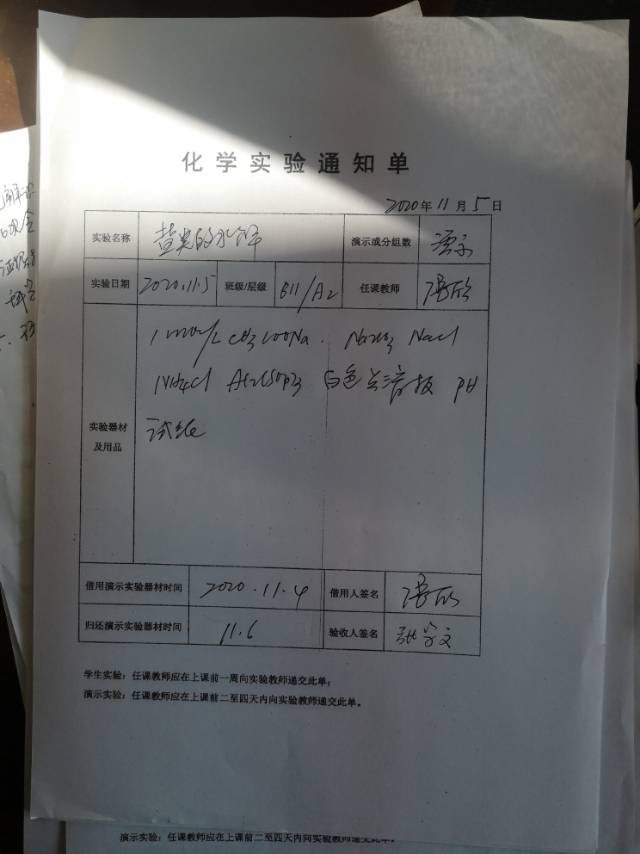 化学实验通知单
2020年11月5日
实验名称 盐类的水解 演示或分组数 演示
实验日期 2020.11.5 班级/层级 B11/A2 任课教师 冯欣
1mol/L CH3COONa、 Na2CO3 NaCl
NH4Cl Al2(SO4)3 白色点滴板 PH
实验器材
及用品
试纸
借用演示实验器材时间 2020.11.4 借用人签名 冯欣
归还演示实验器材时间 11.6 验收人签名 张学文
学生实验：任课教师应在上课前一周向实验教师递交此单；
演示实验：任课教师应在上课前二至四天内向实验教师递交此单。
演示实验：任课教师应在上课前二至四天内向实验教师递交此单。